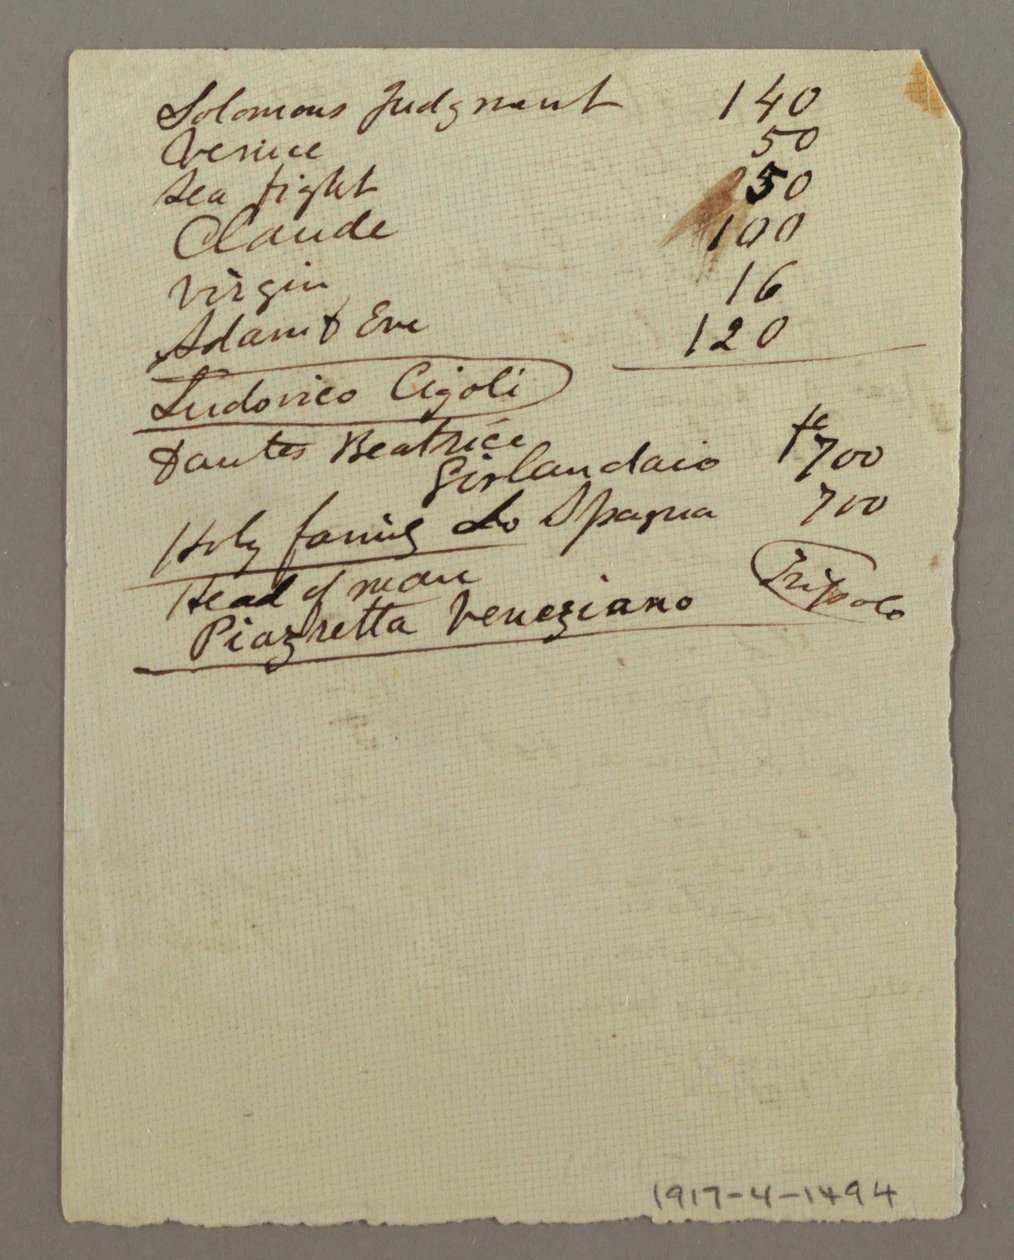 Solomons Judgment 140
Venice 50
Sea fight 50
Claude 100
Virgin 16
Adam & Eve 120
Ludovico Cigoli
Dantes Beatrice
Girlandaio fc 700
Holy family Lo Spagna 700
Head of man
Piazzetta Veneziano Tripolo
1917-4-1494